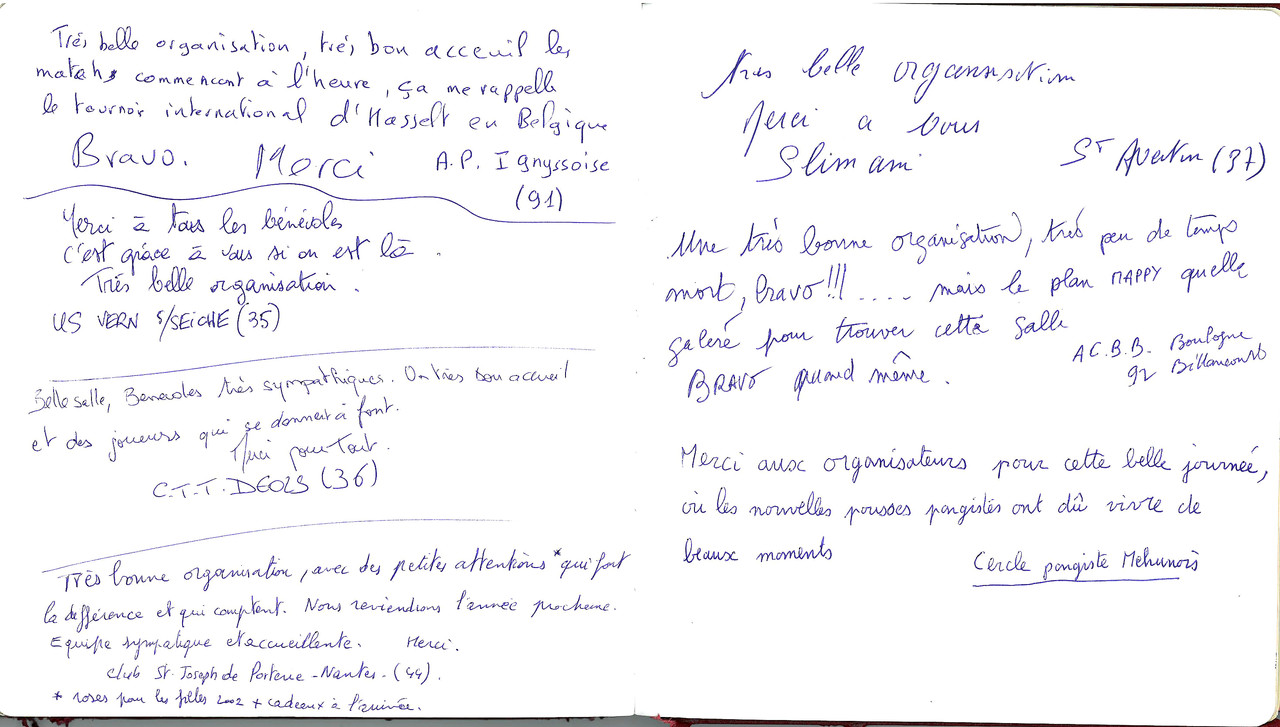 Très belle organisation, très bon acceuil les
matchs commencent à l'heure, ça me rappelle
le tournoi international d'Hasselt en Belgique
Bravo. Merci A.P. Ignyssoise
(91)
Merci à tous les bénévoles
c'est grâce à vous si on est là.
Très belle organisation.
US VERN S/SEICHE (35)
Belle salle, Bénévoles très sympathiques. Un très bon accueil
et des joueurs qui se donnent à font.
Merci pour Tout.
C.T.T. DEOLS (36)
Très bonne organisation, avec des petites attentions* qui font
la différence et qui comptent. Nous reviendrons l'année prochaine.
Equipe sympatique et accueillente. Merci.
club St. Joseph de Porterie - Nantes - (44).
* roses pour les filles 2002 + cadeaux à l'arrivée.
Très belle organisation
Merci a Vous
Slimani St Avertin (37)
Une très bonne organisation, très peu de temps
mort, bravo!!! .... mais le plan MAPPY quelle
galère pour trouver cette salle
BRAVO quand même.
A.C.B.B. Boulogne
92 Billancourt
Merci aux organisateurs pour cette belle journée,
où les nouvelles pousses pongistes ont dû vivre de
beaux moments
Cercle pongiste Mehunois